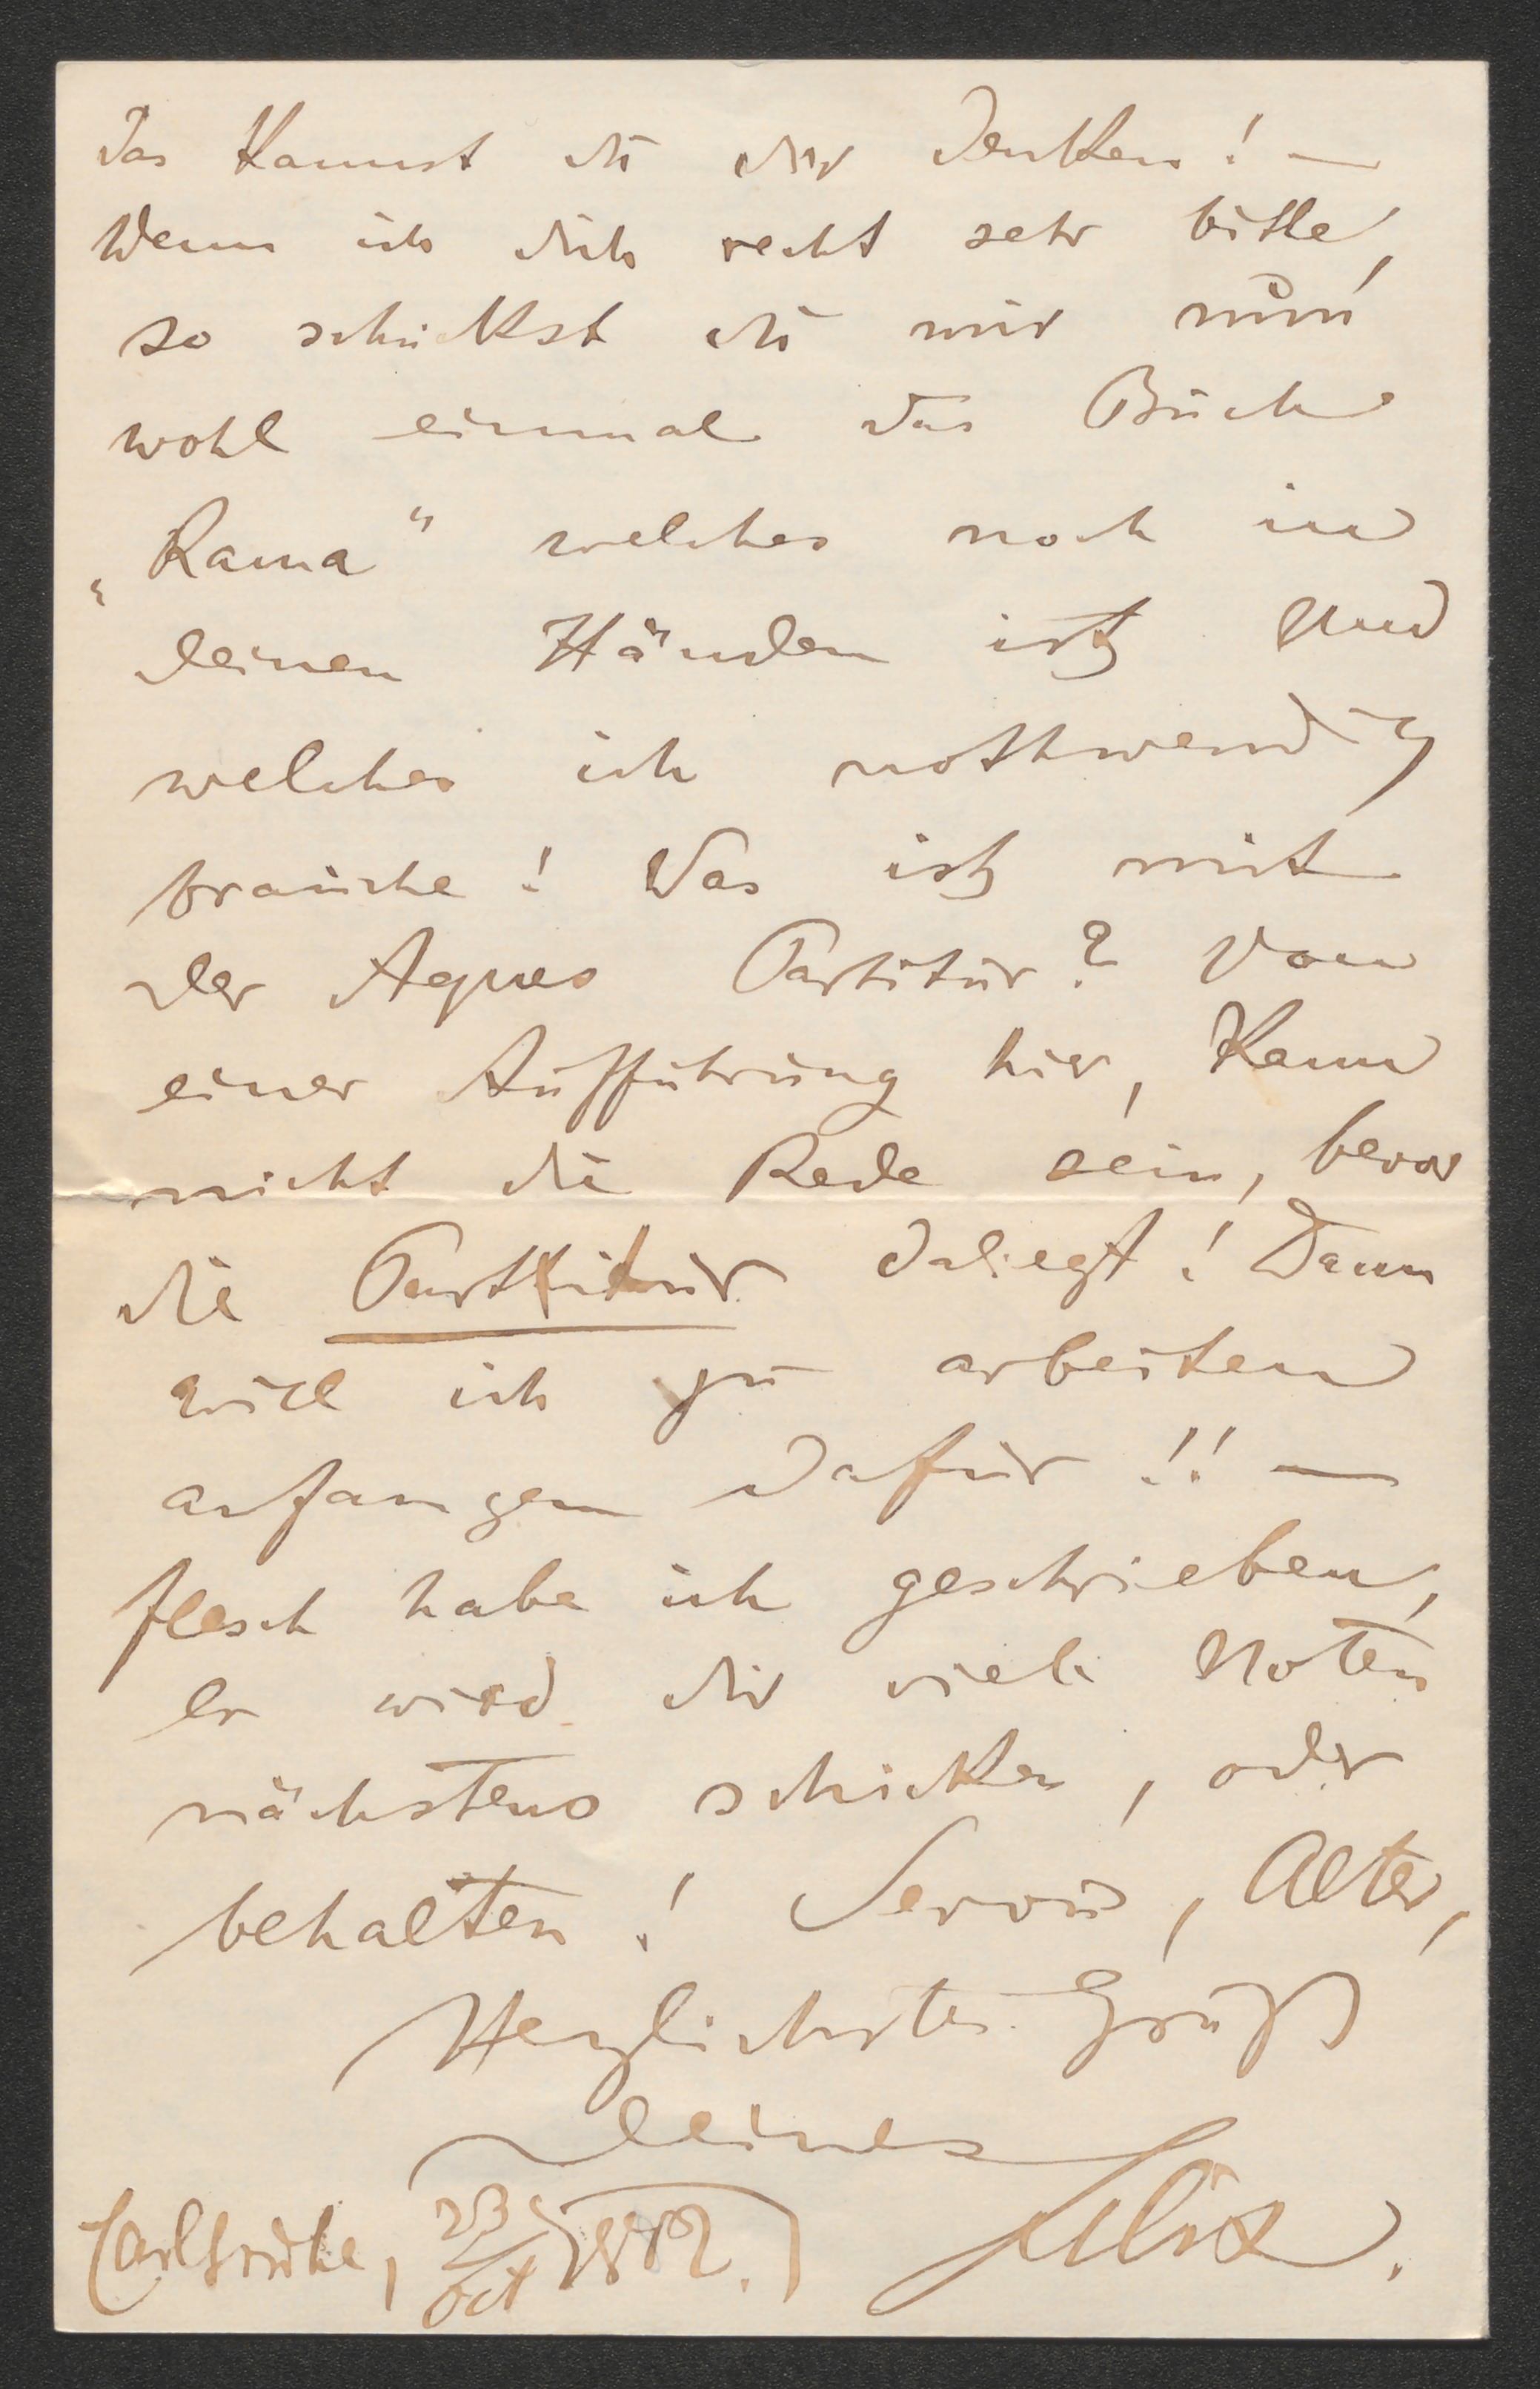 das kannst du dir denken! —
Wenn ich dich recht sehr bitte,
so schickst du mir nun
wohl einmal das Buch
„Rama“ welches noch in
deinen Händen ist und
welches ich nothwendig
brauche! Was ist mit
der Agnes Partitur? Von
einer Aufführung hier, kann
nicht die Rede sein, bevor
die Partitur daliegt! Dann
will ich zu arbeiten
anfangen dafür!! —
Flesch habe ich geschrieben,
er wird dir viele Noten
nächstens schicken, oder
behalten! Servus, Alter,
Herzlichster Gruß
deines
Felix.
Carlsruhe, 23/Oct 1882.